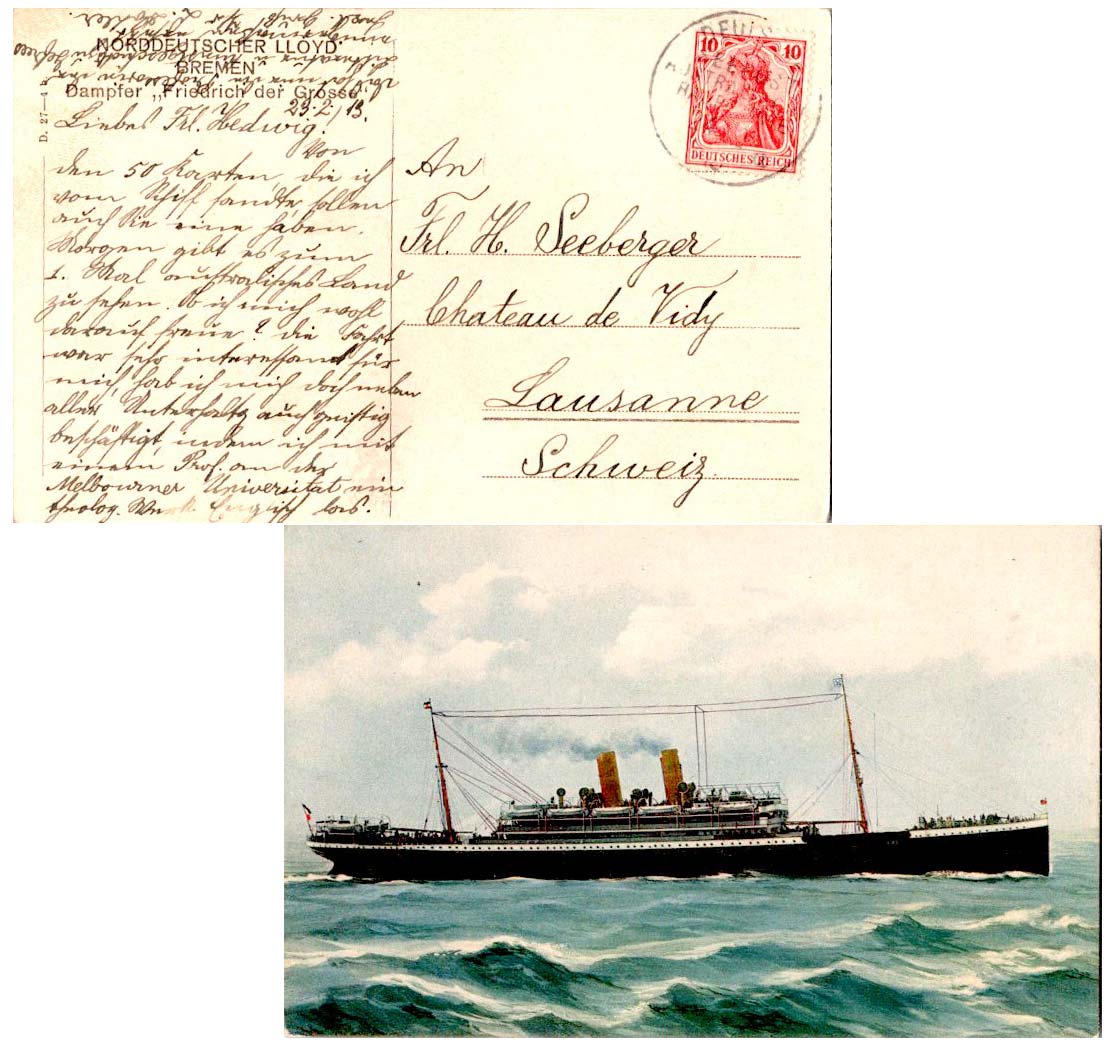 NORDDEUTSCHER LLOYD
BREMEN
Dampfer „Friedrich der Grosse"
D. 27—4
23.2./13.
Liebes Frl. Hedwig!
Von
den 50 Karten, die ich
vom Schiff sandte sollen
auch Sie eine haben.
Morgen gibt es zum
1. Mal australisches Land
zu sehen. Ob ich mich wohl
darauf freue? die Fahrt
war sehr interessant für
mich, hab ich mich doch neben
aller Unterhaltg auch geistig
beschäftigt, indem ich mit
einem Prof. an der
Melbourner Universität ein
theolog. Werk Englisch las.
10 10
DEUTSCHES REICH
An
Frl. H. Seeberger
Chateau de Vidy
Lausanne
Schweiz.